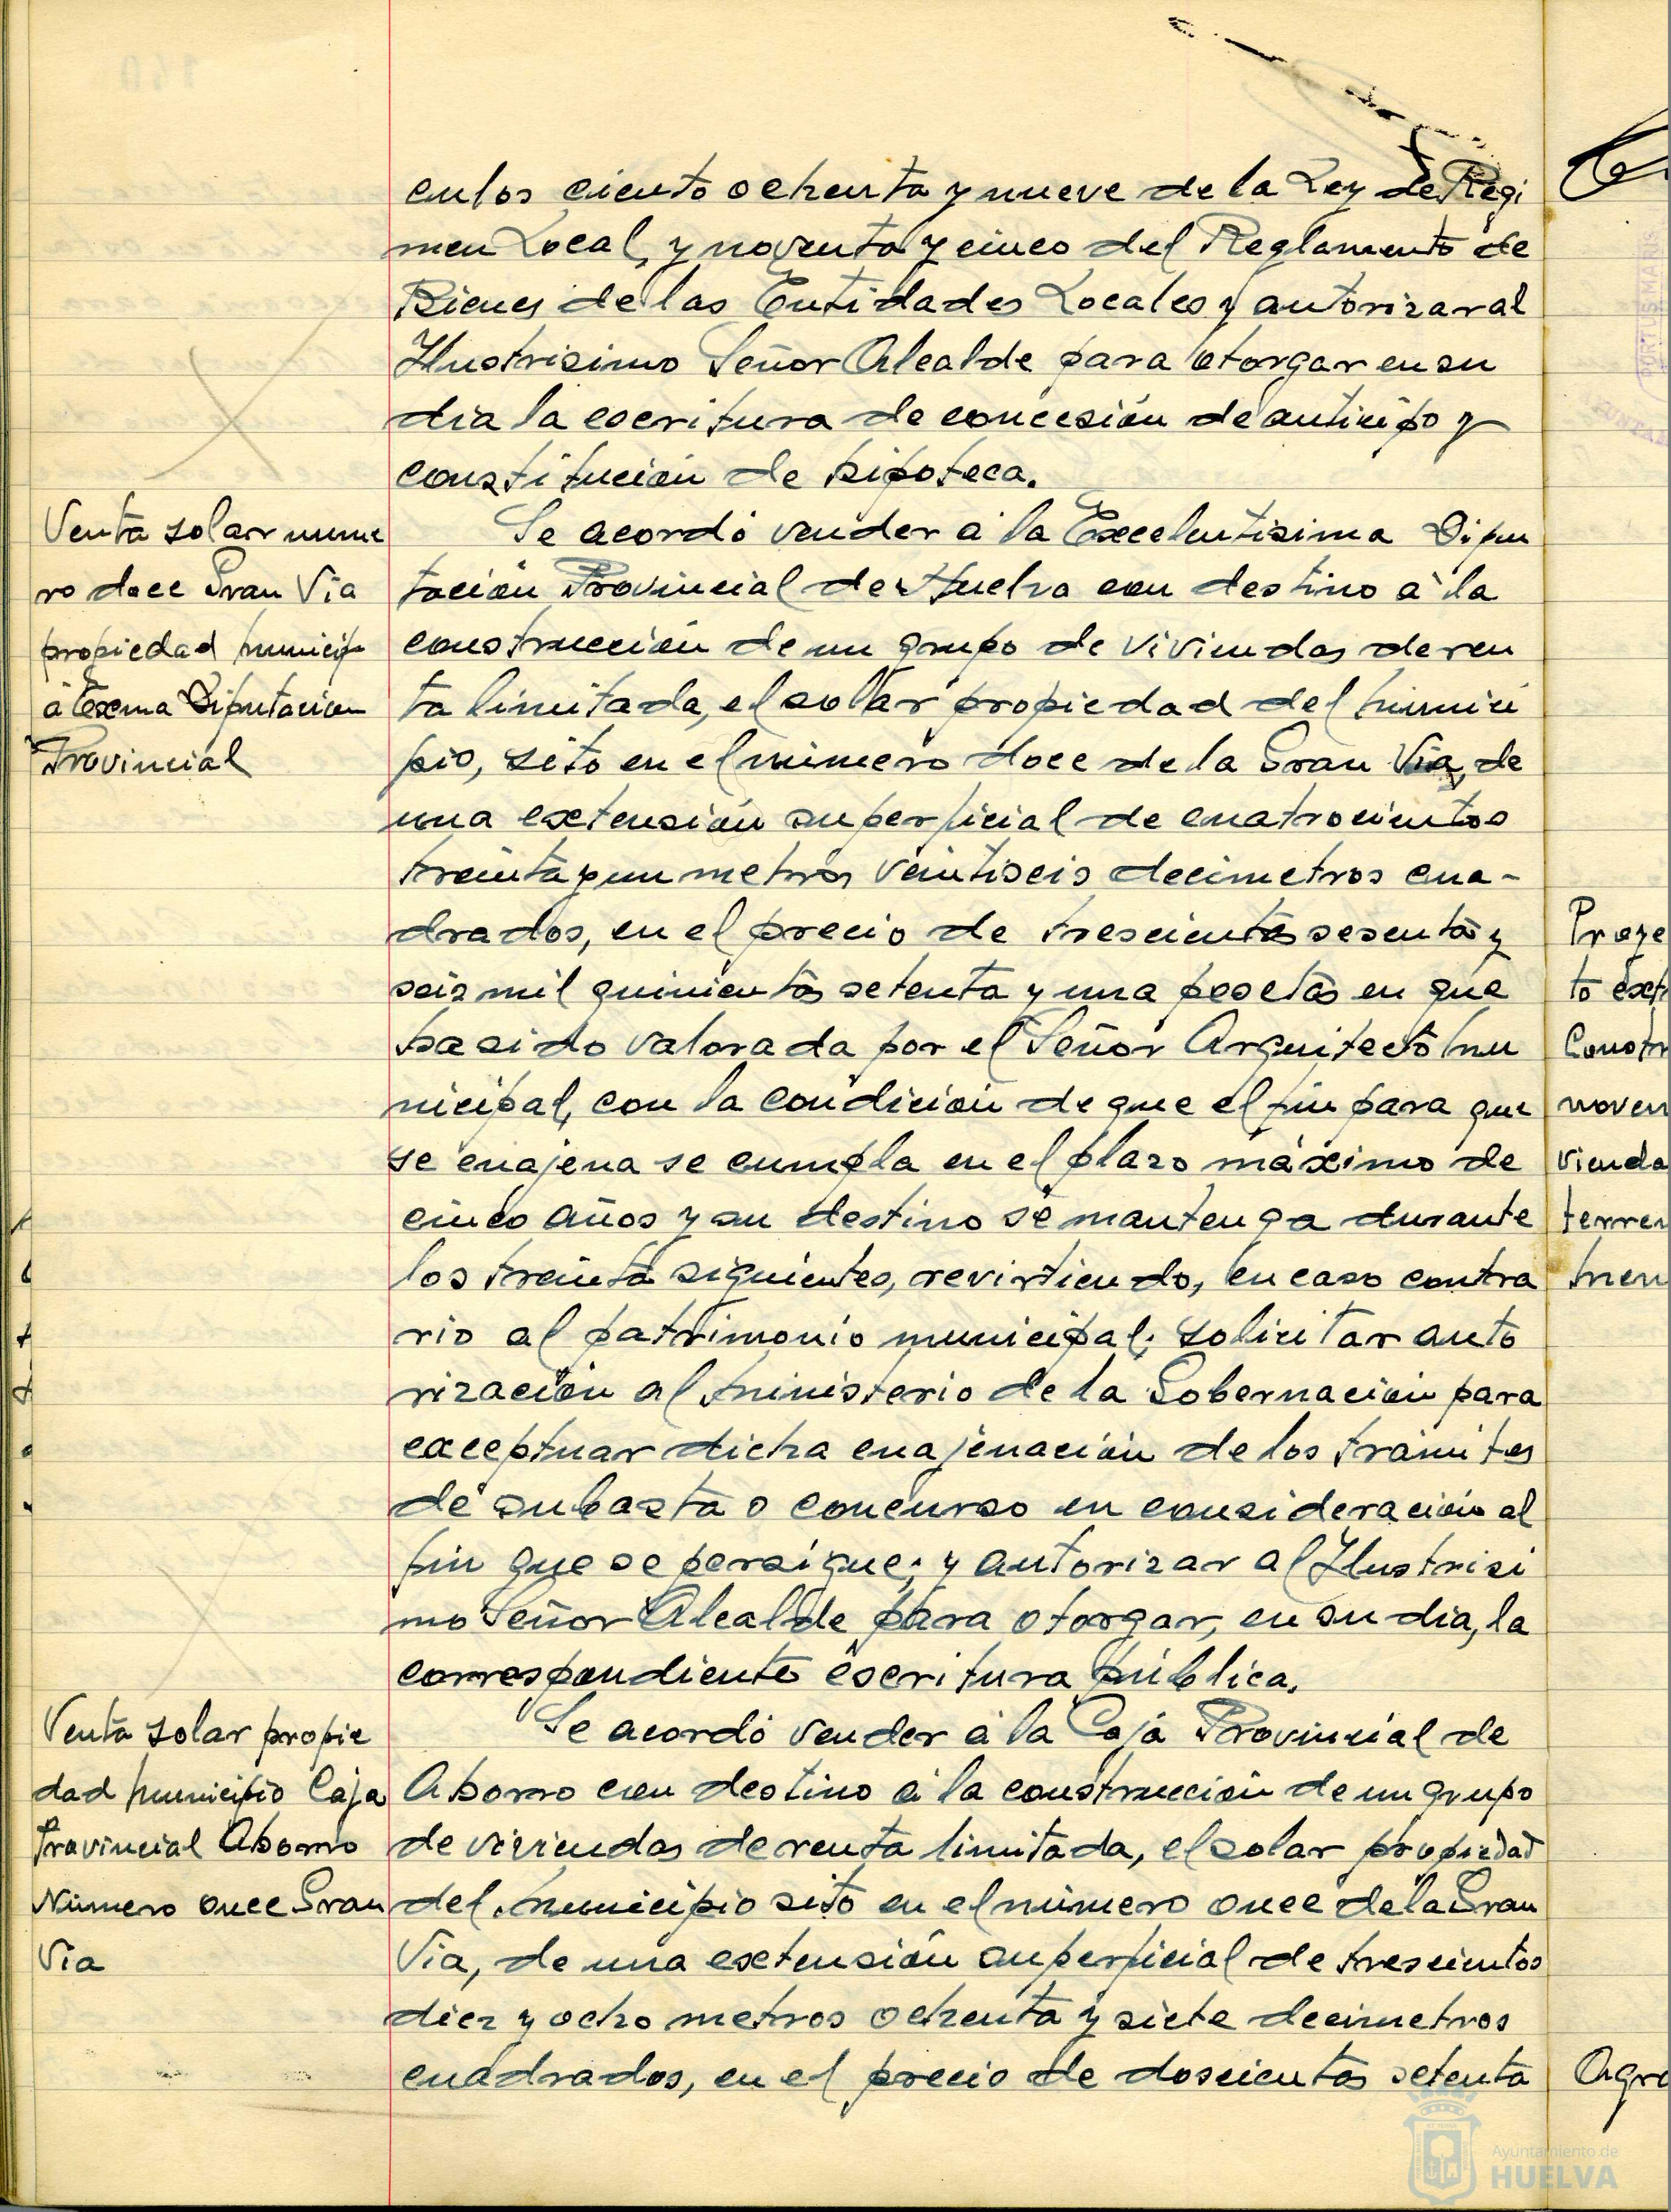 culos ciento ochenta y nueve de la Ley de Regi
men Local, y noventa y cinco del Reglamento de
Bienes de las Entidades Locales y autorizar al
Ilustrisimo Señor Alcalde para otorgar en su
dia la escritura de concesión de anticipo y
constitución de hipoteca.
Venta solar nume
ro doce Gran Via
propiedad municip
a Excma Diputacion
Provincial
Se acordó vender a la Excelentisima Dipu
tación Provincial de Huelva con destino a la
construcción de un grupo de viviendas de ren
ta limitada, el solar propiedad del Munici
pio, sito en el número doce de la Gran Via, de
una extensión superficial de cuatrocientos
treinta y un metros veintiseis decimetros cua-
drados, en el precio de trescientas sesenta y
seis mil quinientas setenta y una pesetas en que
ha sido valorada por el Señor Arquitecto Mu
nicipal, con la condición de que el fin para que
se enajena se cumpla en el plazo máximo de
cinco años y su destino se mantenga durante
los treinta siguientes, revirtiendo, en caso contra
rio al patrimonio municipal; solicitar auto
rización al Ministerio de la Gobernación para
exceptuar dicha enajenación de los trámites
de subasta o concurso en consideración al
fin que se persigue; y autorizar al Ilustrisi
mo Señor Alcalde para otorgar, en su dia, la
correspondiente escritura pública.
Venta solar propie
dad Municipio Caja
Provincial Ahorro
Número once Gran
Via
Se acordó vender a la Caja Provincial de
Ahorro con destino a la construcción de un grupo
de viviendas de renta limitada, el solar propiedad
del Municipio sito en el número once de la Gran
Via, de una extensión superficial de trescientos
diez y ocho metros ochenta y siete decimetros
cuadrados, en el precio de doscientas setenta
Proye
to ext
Constr
noven
vienda
terren
men
Agra
Ayuntamiento de
HUELVA